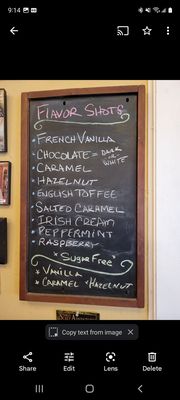 9:14
81%
FLAVOR SHOTS
FRENCH VANILLA
CHOCOLATE = DARK OR WHITE
CARAMEL
HAZELNUT
ENGLISH TOFFEE
SALTED CARAMEL
IRISH CREAM
PEPPERMINT
RASPBERRY
* SUGAR FREE *
* VANILLA
* CARAMEL * HAZELNUT
Copy text from image
Share
Edit
Lens
Delete